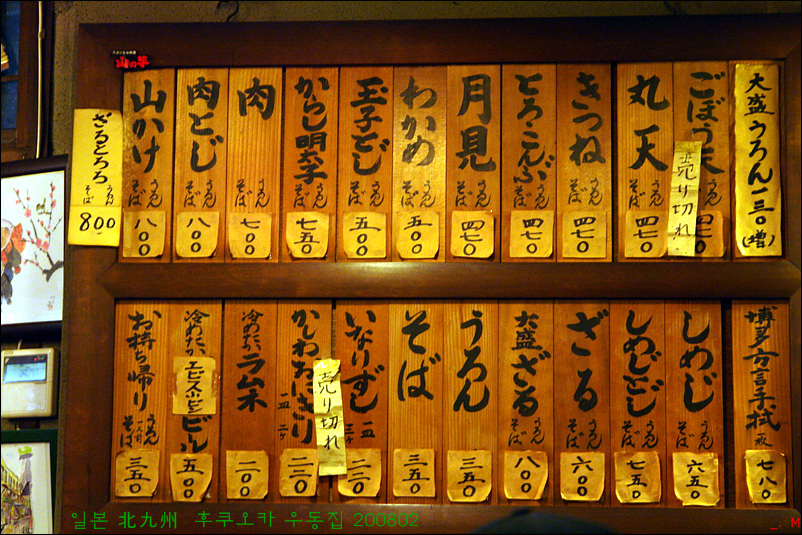 山の芋
大盛うろん一三〇(増)
ごぼう天 うろん そば 四七〇
売り切れ
丸天 うろん そば 四七〇
きつね うろん そば 四七〇
とろこんぶ うろん そば 四七〇
月見 うろん そば 四七〇
わかめ うろん そば 五〇〇
玉子とじ うろん そば 五〇〇
からし明太子 うろん そば 七五〇
肉 うろん そば 七〇〇
肉とじ うろん そば 八〇〇
山かけ うろん そば 八〇〇
ざるとろろ うろん そば 800
博多方言手拭 七八〇
しめじ うろん そば 六五〇
しめじとじ うろん そば 七五〇
ざる うろん そば 六〇〇
大盛ざる うろん そば 八〇〇
うろん 三五〇
そば 三五〇
いなりずし 一皿 三ヶ 二二〇
売り切れ
かしわおにぎり 一皿 二ヶ 二二〇
冷めたいラムネ 二〇〇
冷めたい ビール 五〇〇
お持ち帰り 一人前 うろん そば 三五〇
일본 北九州 후쿠오카 우동집 200802